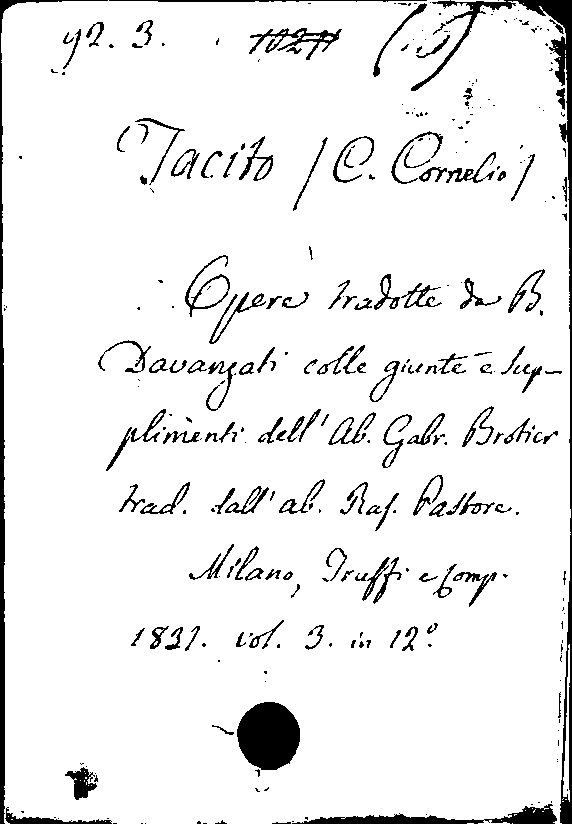 92. 3.
Tacito / C. Cornelio /
Opere tradotte da B.
Davanzati colle giunte e sup-
plimenti dell' Ab. Gabr. Brotier
trad. dall' ab. Raf. Pastore.
Milano, Truffi e Comp.
1831. vol. 3. in 12°.